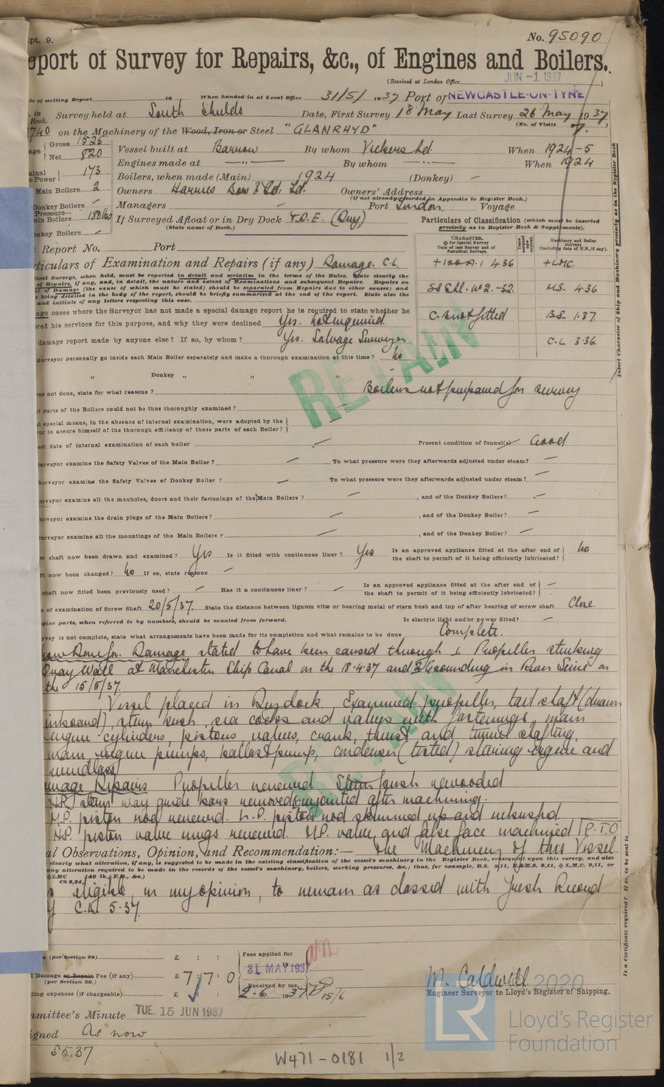 pt. 9. No. 95090
port of Survey for Repairs, &c., of Engines and Boilers.
(Received at London Office JUN -1 1937
te of writing Report 19 When handed in at Local Office 31/5/ 1937 Port of NEWCASTLE-ON-TYNE
Survey held at South Shields Date, First Survey 18 May Last Survey 26 May 1937
(No. of Visits 7.
740 on the Machinery of the Wood, Iron or Steel "GLANRHYD"
Gross 1526
Net 820
Vessel built at Barrow By whom Vickers Ld When 1924-5
Engines made at — By whom — When 1924
173
Boilers, when made (Main) 1924 (Donkey) —
Main Boilers 2
Owners Harries Bros & Co. Ld. Owners' Address
(if not already recorded in Appendix to Register Book.)
Donkey Boilers —
Managers Port London Voyage
in Boilers 180 lb
If Surveyed Afloat or in Dry Dock T.D.E. (Dry)
(State name of Dock.)
nkey Boilers —
Particulars of Classification (which must be inserted
precisely as in Register Book & Supplements).
Report No. Port
rticulars of Examination and Repairs (if any) Damage. C.L.
+100A.1 4.36 +LMC.
M.S. 4.36
C. not fitted B.S. 1.37
C.L 3.36
age cases where the Surveyor has not made a special damage report he is required to state whether he
ered his services for this purpose, and why they were declined Yes. not required
damage report made by anyone else? If so, by whom? Yes. Salvage Surveyor.
urveyor personally go inside each Main Boiler separately and make a thorough examination at this time? No
" Donkey " " "
as not done, state for what reasons? Boilers not prepared for survey
RETAIN
t parts of the Boilers could not be thus thoroughly examined?
t special means, in the absence of internal examination, were adopted by the
or to assure himself of the thorough efficiency of those parts of each Boiler?
ast date of internal examination of each boiler — Present condition of funnel(s) Good
urveyor examine the Safety Valves of the Main Boiler? — To what pressure were they afterwards adjusted under steam? —
urveyor examine the Safety Valves of Donkey Boiler? — To what pressure were they afterwards adjusted under steam? —
urveyor examine all the manholes, doors and their fastenings of the Main Boilers? — , and of the Donkey Boilers? —
urveyor examine the drain plugs of the Main Boilers? — , and of the Donkey Boiler? —
urveyor examine all the mountings of the Main Boilers? — , and of the Donkey Boiler? —
w shaft now been drawn and examined? Yes Is it fitted with continuous liner? Yes Is an approved appliance fitted at the after end of
the shaft to permit of it being efficiently lubricated? No
ft now been changed? No If so, state reasons —
shaft now fitted been previously used? — Has it a continuous liner? — Is an approved appliance fitted at the after end of
the shaft to permit of it being efficiently lubricated? —
e of examination of Screw Shaft 20/5/37 State the distance between lignum vitæ or bearing metal of stern bush and top of after bearing of screw shaft Close
gine parts, when referred to by numbers, should be counted from forward. Is electric light and/or power fitted? —
vey is not complete, state what arrangements have been made for its completion and what remains to be done Complete.
Damage stated to have been caused through 1 Propeller striking
Quay Wall at Manchester Ship Canal on the 18.4.37 and 2 Grounding in River Seine on
the 15/5/37.
Vessel placed in Drydock, Examined propeller, tail shaft (drawn
inboard), stern bush, sea cocks and valves with fastenings, main
engine cylinders, pistons, valves, crank, thrust and tunnel shafting,
main engine pumps, ballast pump, condenser (tested) steering engine and
windlass
mage Repairs Propeller renewed Stern bush rewooded
H.P. stern way guide bars removed & refitted after machining.
M.P. piston rod renewed. L.P. piston rod skimmed up and rebushed
H.P. piston valve rings renewed. M.P. valve and false face machined P.T.O
RETAIN
al Observations, Opinion, and Recommendation:— The Machinery of this Vessel
is eligible in my opinion, to remain as classed with fresh Record
of C.L. 5.37.
(per Section 29) £ : :
Fees applied for
31 MAY 1937
Damage or Repair Fee (if any) £ 7 : 7 : 0
(per Section 29.)
Received by me
2.6 1937
15/6
lling expenses (if chargeable) £ : :
M. Caldwell
Engineer Surveyor to Lloyd's Register of Shipping.
2020
mmittee's Minute TUE. 15 JUN 1937
signed As now
LR
Lloyd's Register
Foundation
W471-0181 1/2